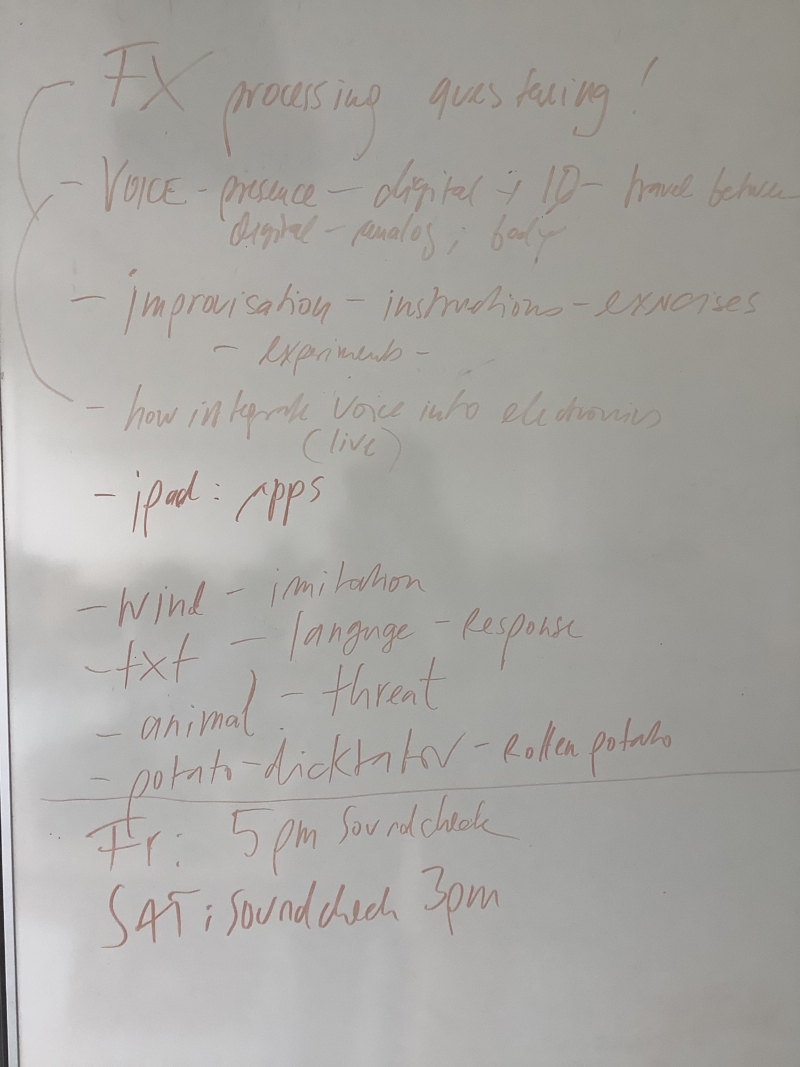 FX processing questening!
- VOICE - presence - digital + ID - travel between
digital - analog; body
- improvisation - instructions - exercises
- experiments -
- how integrate voice into electronics
(live)
- ipad: Apps
- wind - imitation
- txt - language - Response
- animal - threat
- potato - dicktator - Rotten potato
Fr: 5pm Soundcheck
SAT: Soundcheck 3pm